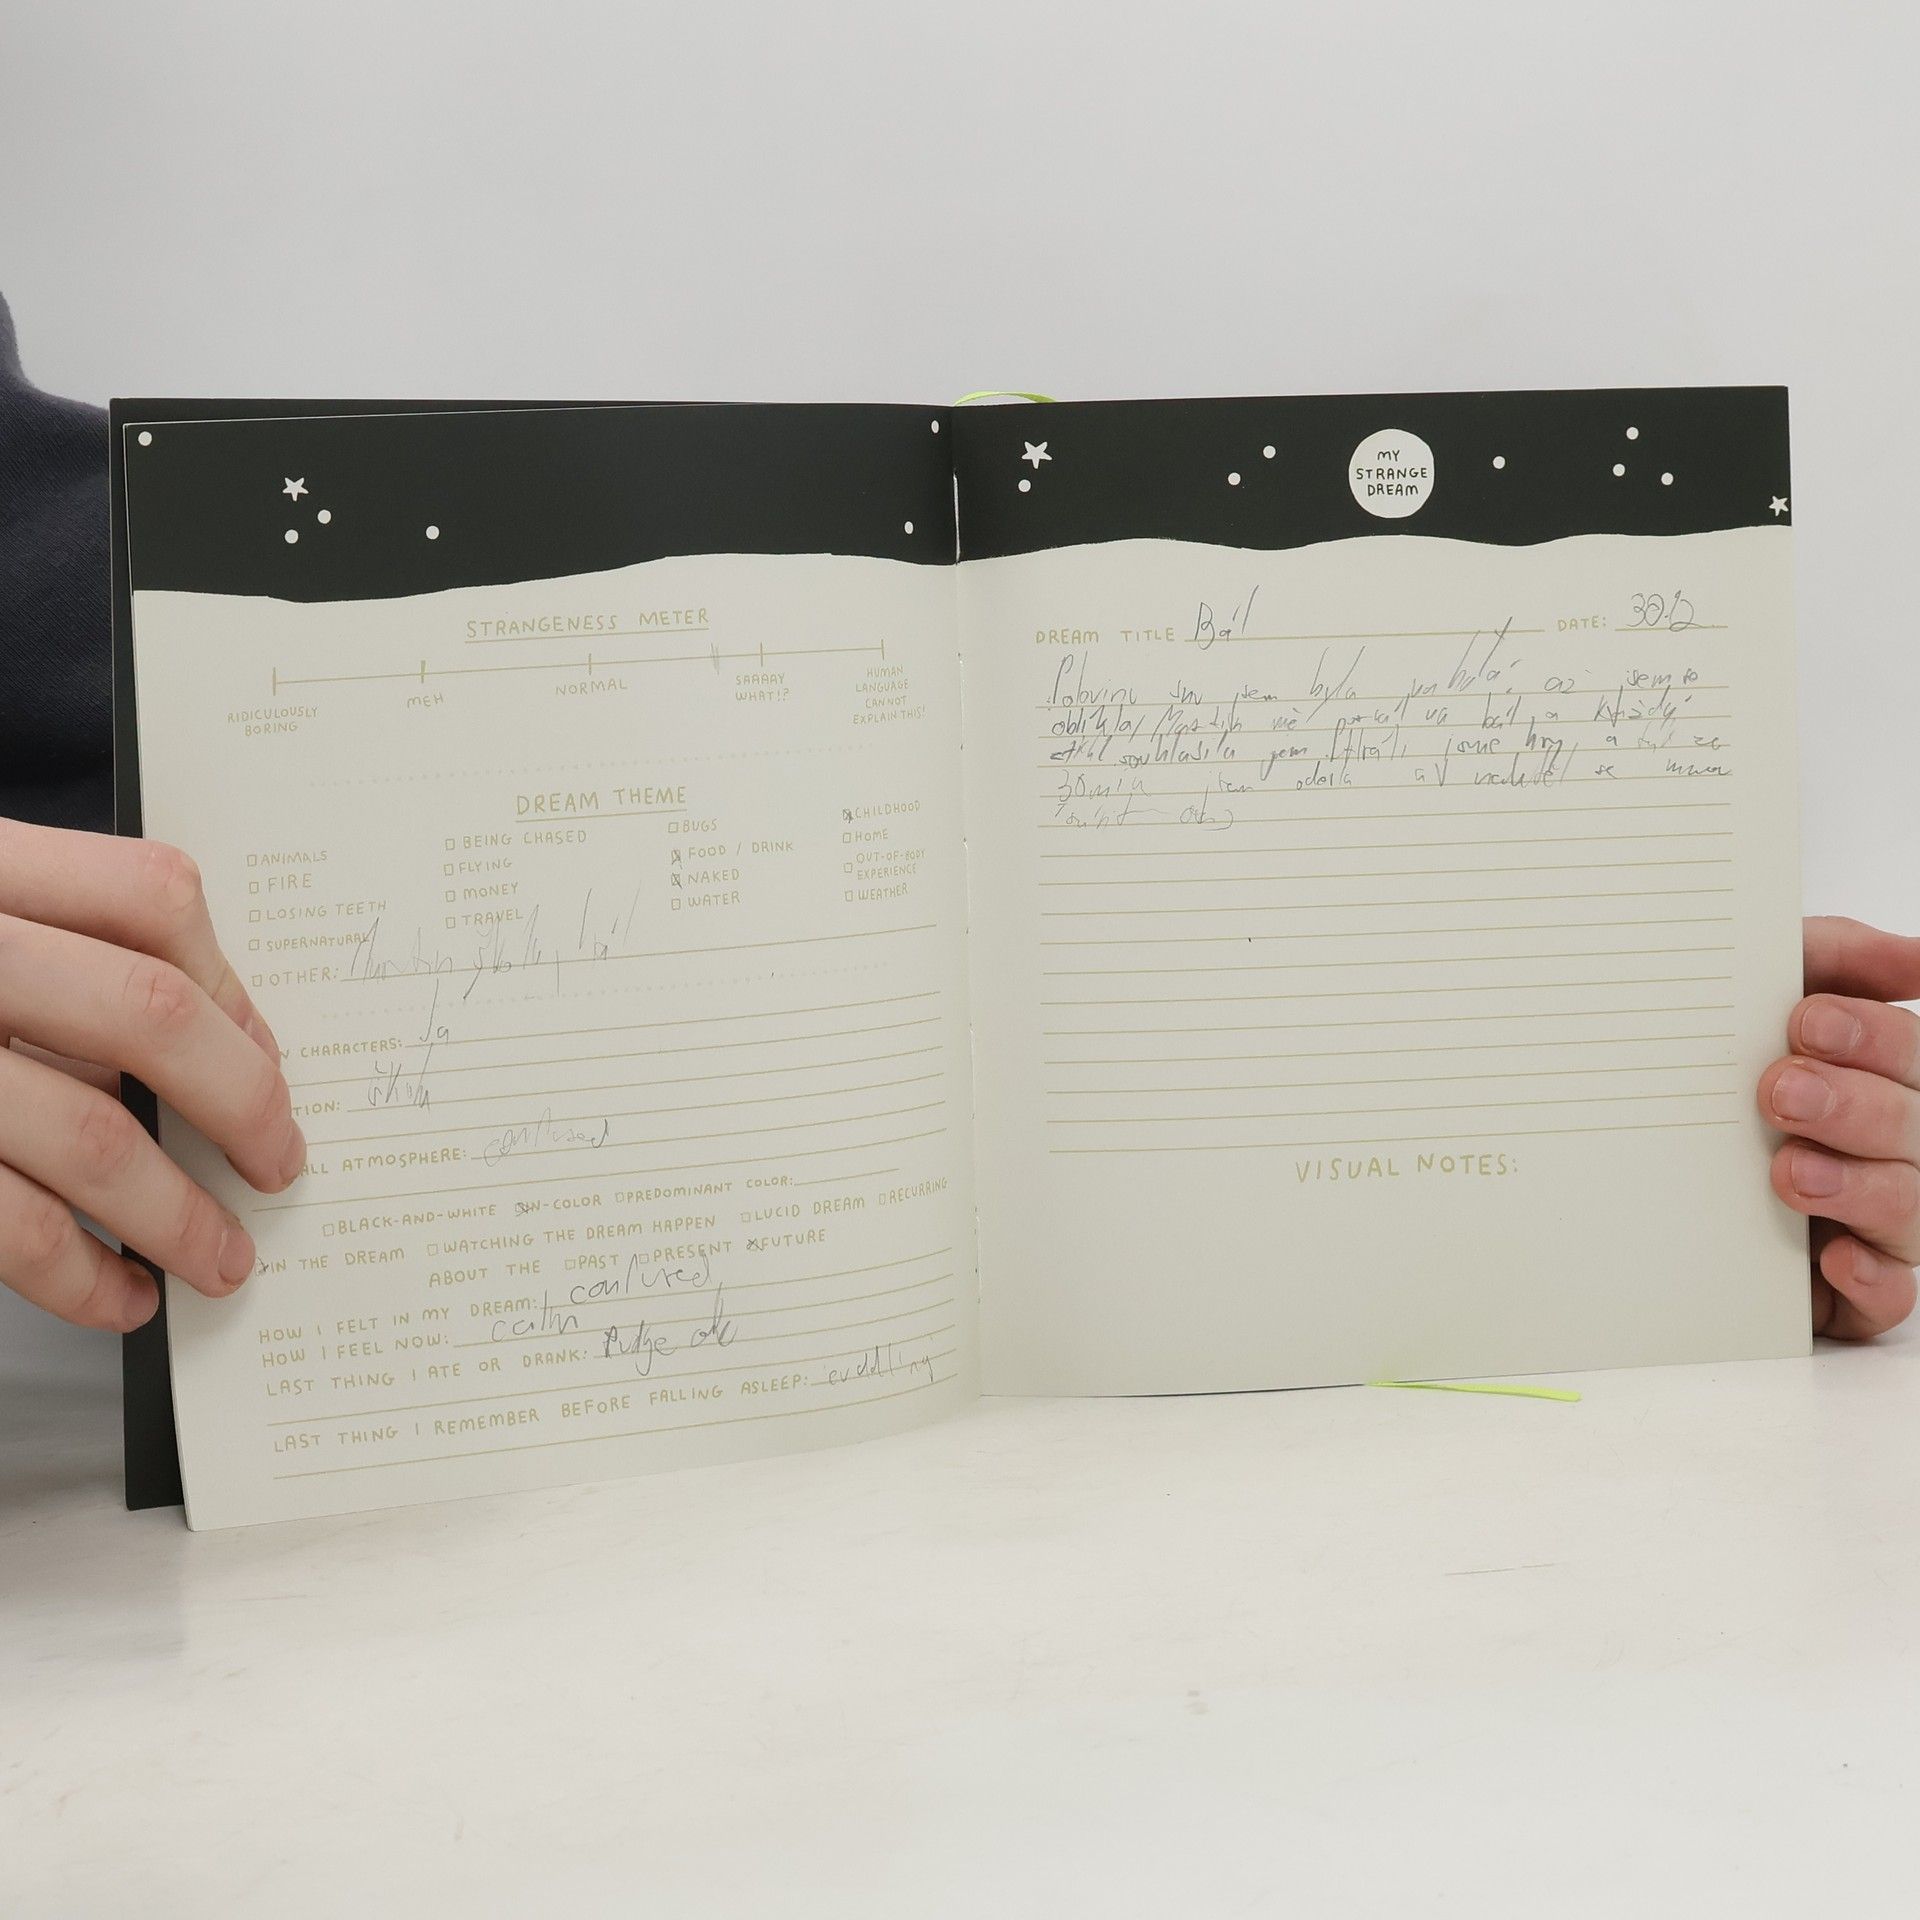 STRANGENESS METER
RIDICULOUSLY BORING
MEH
NORMAL
SAAAAY WHAT!?
HUMAN LANGUAGE CANNOT EXPLAIN THIS!
DREAM THEME
ANIMALS
FIRE
LOSING TEETH
SUPERNATURAL
BEING CHASED
FLYING
MONEY
TRAVEL
BUGS
FOOD / DRINK
NAKED
WATER
CHILDHOOD
HOME
OUT-OF-BODY EXPERIENCE
WEATHER
OTHER:
CHARACTERS: Ja
TION: škola
ALL ATMOSPHERE: confused
BLACK-AND-WHITE IN-COLOR PREDOMINANT COLOR:
IN THE DREAM WATCHING THE DREAM HAPPEN LUCID DREAM RECURRING
ABOUT THE PAST PRESENT FUTURE
HOW I FELT IN MY DREAM: confused
HOW I FEEL NOW: calm
LAST THING I ATE OR DRANK:
LAST THING I REMEMBER BEFORE FALLING ASLEEP: cuddling
MY
STRANGE
DREAM
DREAM TITLE Bál DATE: 30.12
Polovinu snu jsem byla nahá, až jsem se
oblíkla, mě na bál, a každý
souhlasila jsem. Hráli jsme hry, a
30min jsem odešla se mnou
VISUAL NOTES: